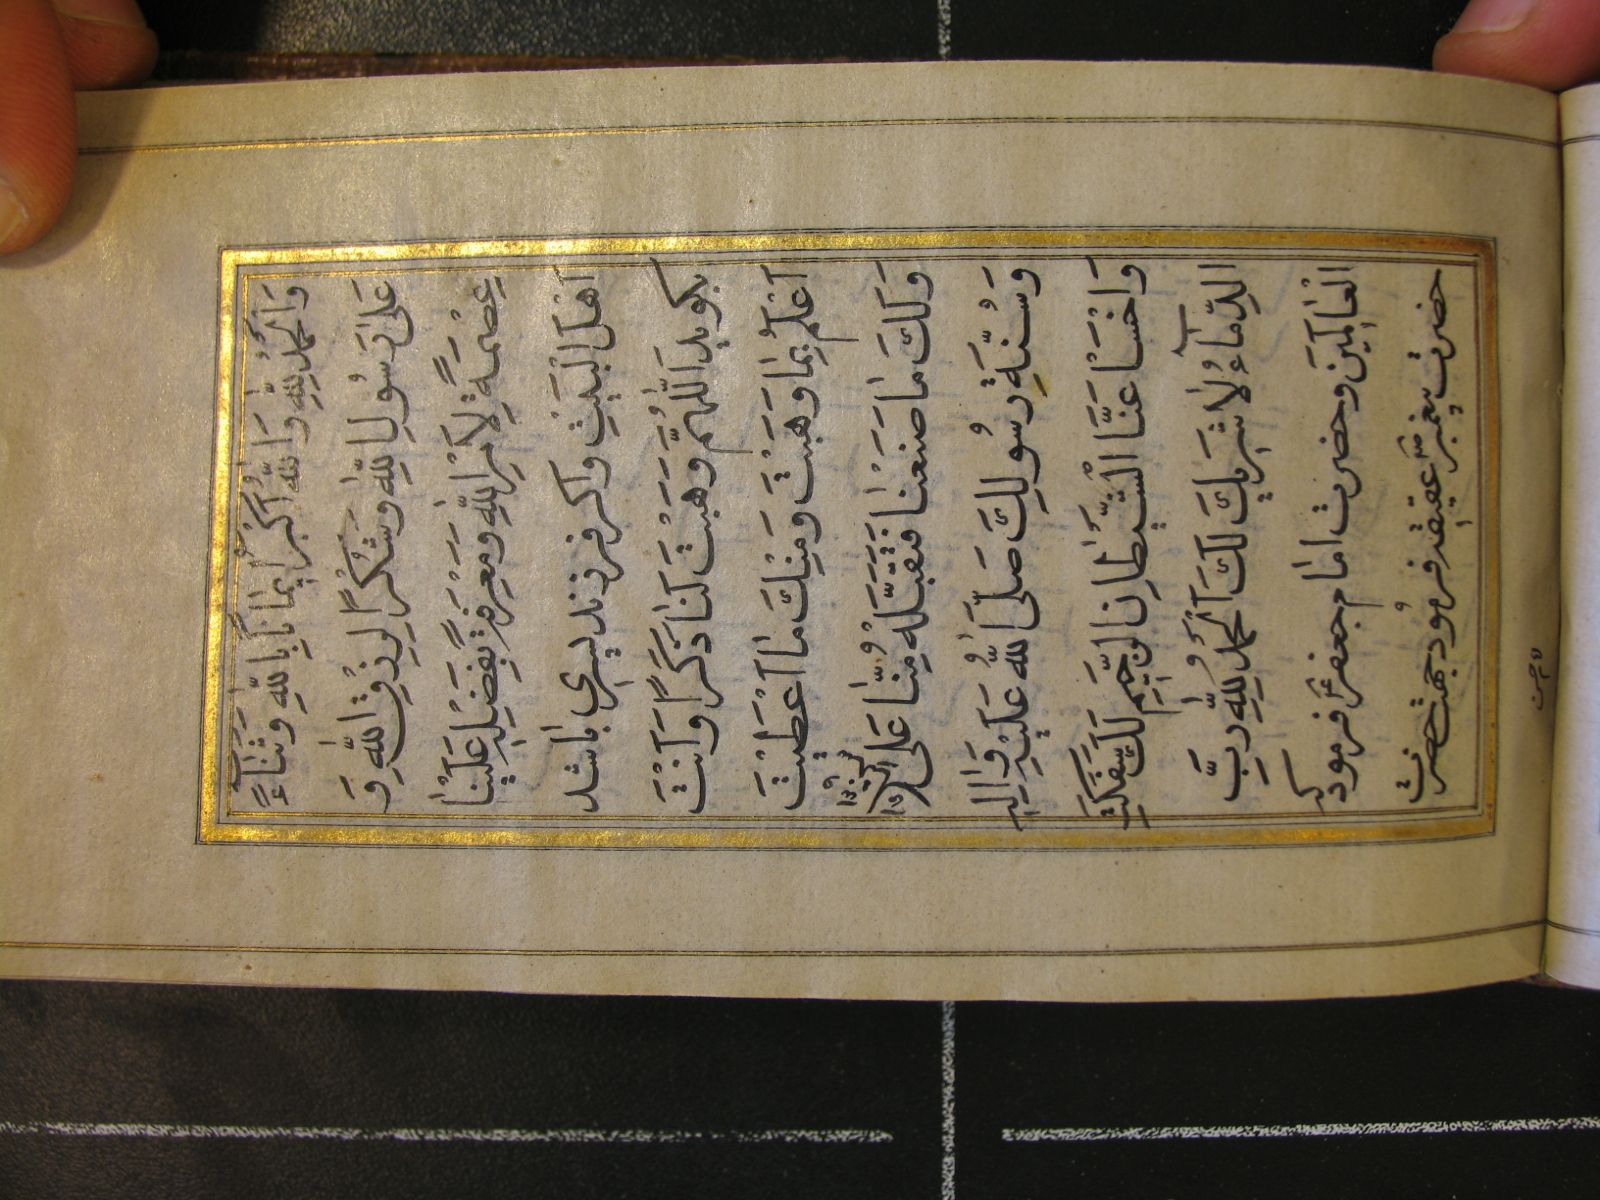 وَالْحَمْدُ لِلّٰهِ وَاللّٰهُ اَكْبَرُ اِيمَانًا بِاللّٰهِ وَثَنَاءً
عَلٰى رَسُولِ اللّٰهِ وَشُكْرًا لِرِزْقِ اللّٰهِ وَ
عِصْمَةً لِاَمْرِ اللّٰهِ وَمَعْرِفَةً بِفَضْلِهِ عَلَيْنَا
اَهْلَ الْبَيْتِ واكر فرزند پسرى باشد
بكويد اَللّٰهُمَّ وَهَبْتَ لَنَا ذَكَرًا وَاَنْتَ
اَعْلَمُ بِمَا وَهَبْتَ وَمِنْكَ مَا اَعْطَيْتَ
وَلَكَ مَا صَنَعْنَا فَتَقَبَّلْهُ مِنَّا عَلٰى
وَسُنَّةِ رَسُولِكَ صَلَّى اللّٰهُ عَلَيْهِ وَاٰلِهِ
وَاخْسَأْ عَنَّا الشَّيْطَانَ الرَّجِيمَ لَكَ سَفَكْتُ
الدِّمَاءَ لَا شَرِيكَ لَكَ اَلْحَمْدُ لِلّٰهِ رَبِّ
الْعَالَمِينَ وحضرت امام جعفرؑ فرمود كه
حضرت پيغمبرؐ عقيقه فرمود جهت حضرت